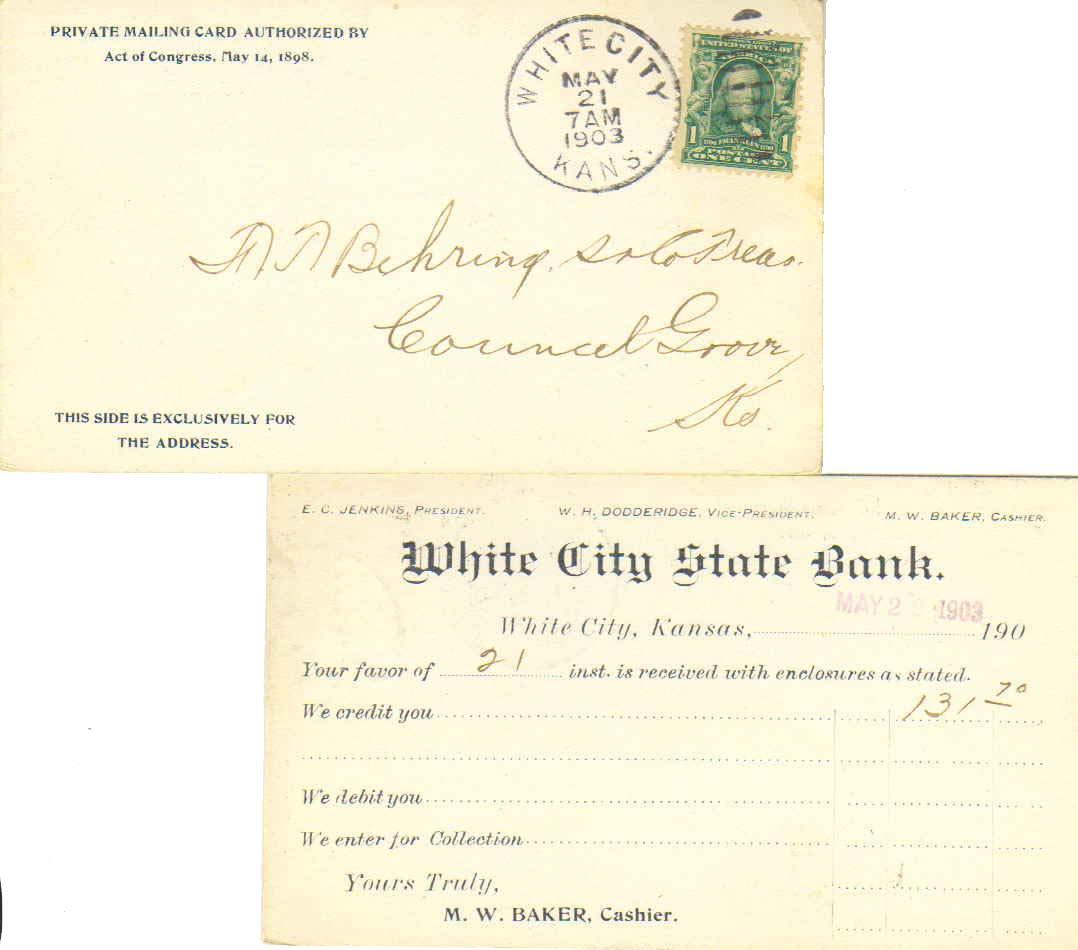 PRIVATE MAILING CARD AUTHORIZED BY
Act of Congress, May 14, 1898.
WHITE CITY
MAY
21
7AM
1903
KANS.
UNITED STATES OF
AMERICA
1 FRANKLIN 1
POSTAGE
ONE CENT
Behring, Treas.
Councel Grove,
Ks.
THIS SIDE IS EXCLUSIVELY FOR
THE ADDRESS.
E. C. JENKINS, PRESIDENT. W. H. DODDERIDGE, VICE-PRESIDENT. M. W. BAKER, CASHIER.
White City State Bank.
MAY 2 1903
White City, Kansas, 190
Your favor of 21 inst. is received with enclosures as stated.
We credit you 131 70
We debit you
We enter for Collection
Yours Truly,
M. W. BAKER, Cashier.